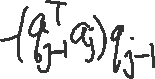 -(q_{j-1}^T a_j) q_{j-1}